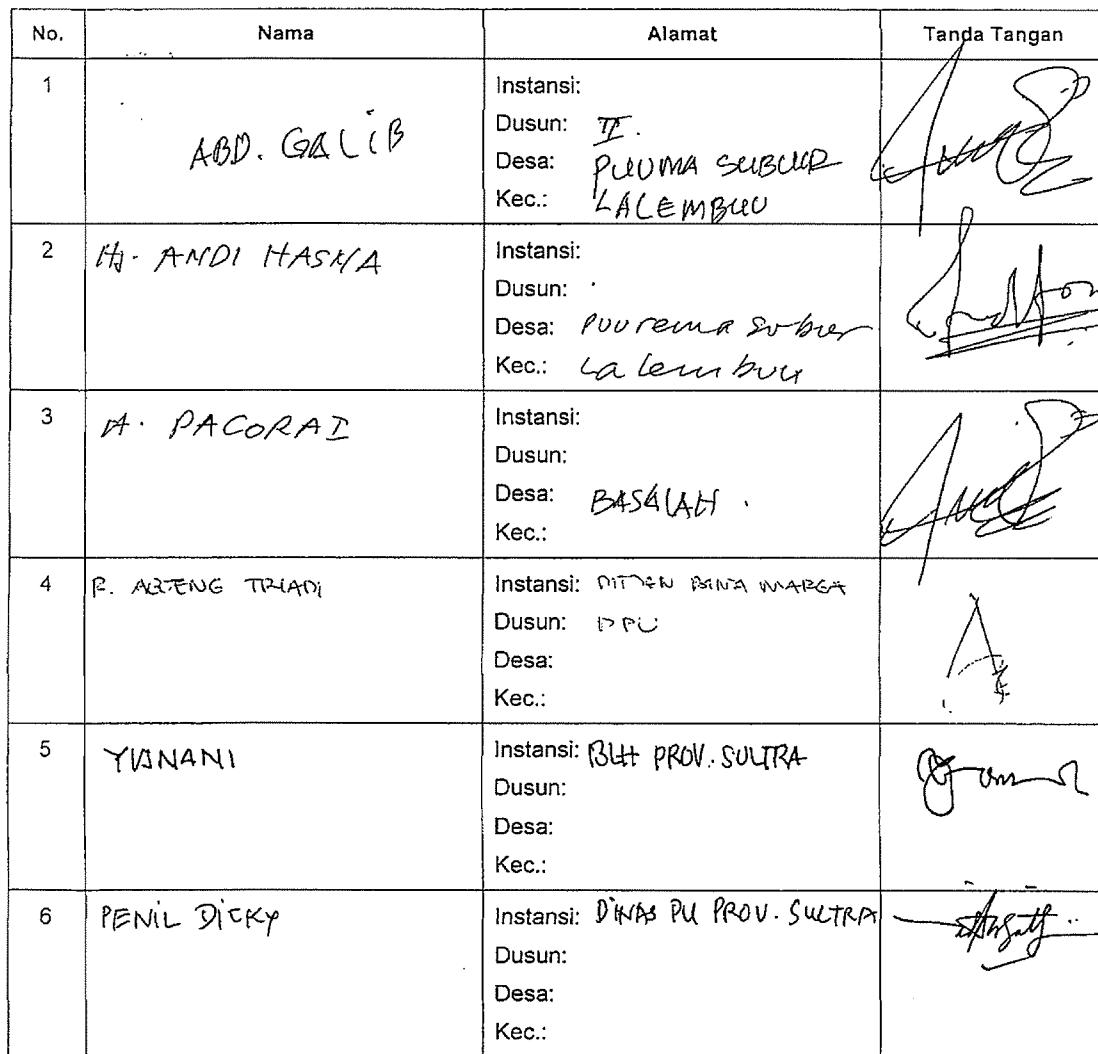 No. Nama Alamat Tanda Tangan
1 ABD. GALIB Instansi:
Dusun: II.
Desa: PUUMA SUBUR
Kec.: LALEMBUU
2 Hj. ANDI HASNA Instansi:
Dusun:
Desa: Puurema Subur
Kec.: Lalembuu
3 A. PACORAI Instansi:
Dusun:
Desa: BASALAH .
Kec.:
4 TRIADI Instansi: BINA MARGA
Dusun: DPU
Desa:
Kec.:
5 YUNANI Instansi: BLH PROV. SULTRA
Dusun:
Desa:
Kec.:
6 PENIL DICKY Instansi: DINAS PU PROV. SULTRA
Dusun:
Desa:
Kec.: